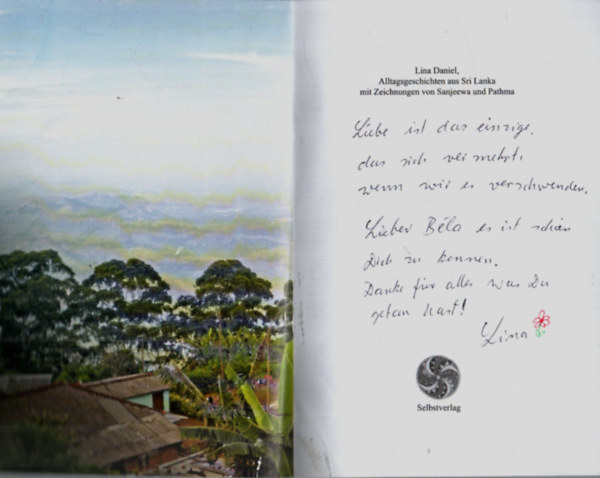 Lina Daniel,
Alltagsgeschichten aus Sri Lanka
mit Zeichnungen von Sanjeewa und Pathma
Liebe ist das einzige,
das sich vermehrt,
wenn wir es verschwenden.
Lieber Béla es ist schön
Dich zu kennen.
Danke für alles was Du
getan hast!
Lina
Selbstverlag